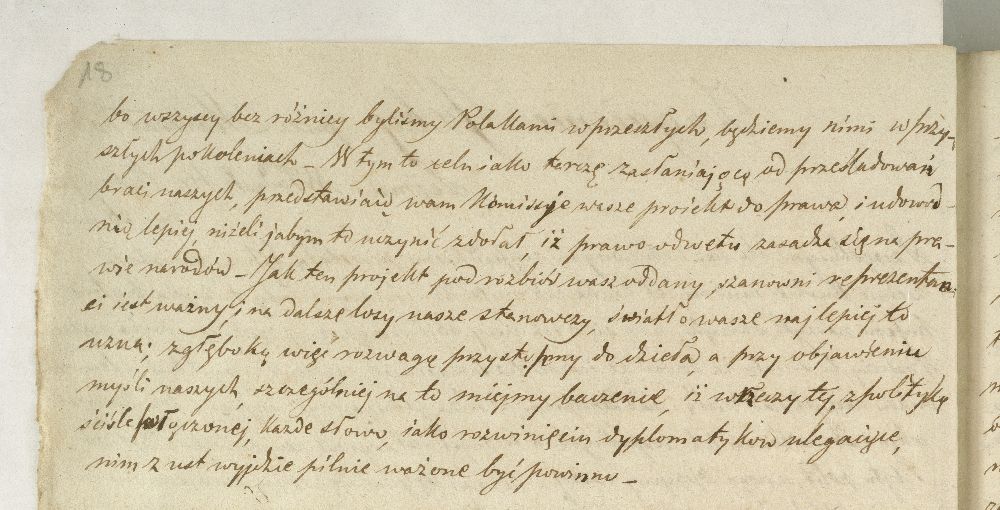 18
bo wszyscy bez różnicy byliśmy Polakami w przeszłych, będziemy nimi w przy-
szłych pokoleniach – W tym to celu iako tarczę zasłaniaiącą od prześladowań
braci naszych, przedstawiaią wam Komissye wasze proiekt do prawa, i udowod-
nią lepiej, niżeli jabym to uczynić zdołał, iż prawo odwetu zasadza się na pra-
wie narodów – Jak ten projekt pod rozbiór wasz oddany, szanowni reprezentan-
ci iest ważny, i na dalsze losy nasze stanowczy, światło wasze najlepiej to
uzna; z głęboką więc rozwagą przystąpmy do dzieła, a przy objawieniu
myśli naszych, szczególniej na to miéjmy baczenie, iż w rzeczy tej, z polityką
ściśle połączonej, każde słowo, iako rozwinięciu dyplomatyków ulegaiące,
nim z ust wyjdzie pilnie ważone być powinno –